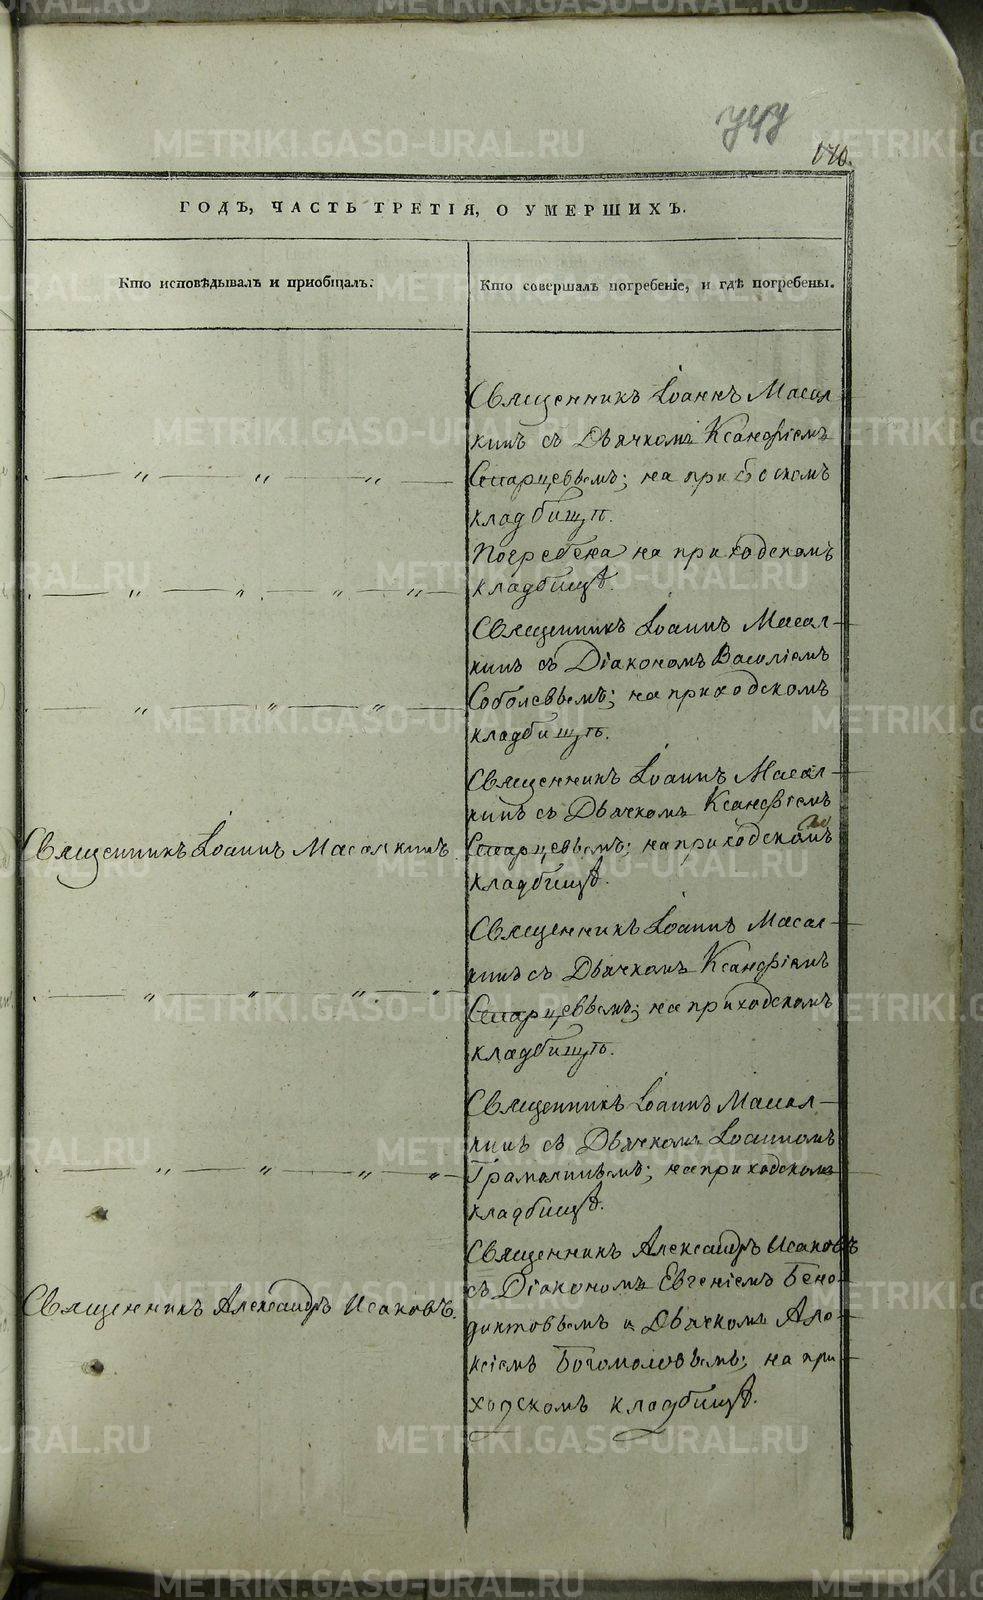 747
170.
ГОДЪ, ЧАСТЬ ТРЕТІЯ, О УМЕРШИХЪ.
Кто исповѣдывалъ и пріобщалъ:
Кто совершалъ погребеніе, и гдѣ погребены.
Священникъ Іоаннъ Масал-
кинъ съ Дьячкомъ Ксанфіемъ
Старцевымъ; на приходскомъ
кладбищѣ.
Погребена на приходскомъ
кладбищѣ.
Священникъ Іоаннъ Масал-
кинъ съ Діакономъ Василіемъ
Соболевымъ; на приходскомъ
кладбищѣ.
Священникъ Іоаннъ Масалкинъ.
Священникъ Іоаннъ Масал-
кинъ съ Дьячкомъ Ксанфіемъ
Старцевымъ; на приходскомъ
кладбищѣ.
Священникъ Іоаннъ Масал-
кинъ съ Дьячкомъ Ксанфіемъ
Старцевымъ; на приходскомъ
кладбищѣ.
Священникъ Іоаннъ Масал-
кинъ съ Дьячкомъ Іоанномъ
на приходскомъ
кладбищѣ.
Священникъ Александръ Исаковъ.
Священникъ Александръ Исаковъ
съ Діакономъ Евгеніемъ Бене-
диктовымъ и Дьячкомъ Але-
ксіемъ Богомоловымъ; на при-
ходскомъ кладбищѣ.
METRIKI.GASO-URAL.RU